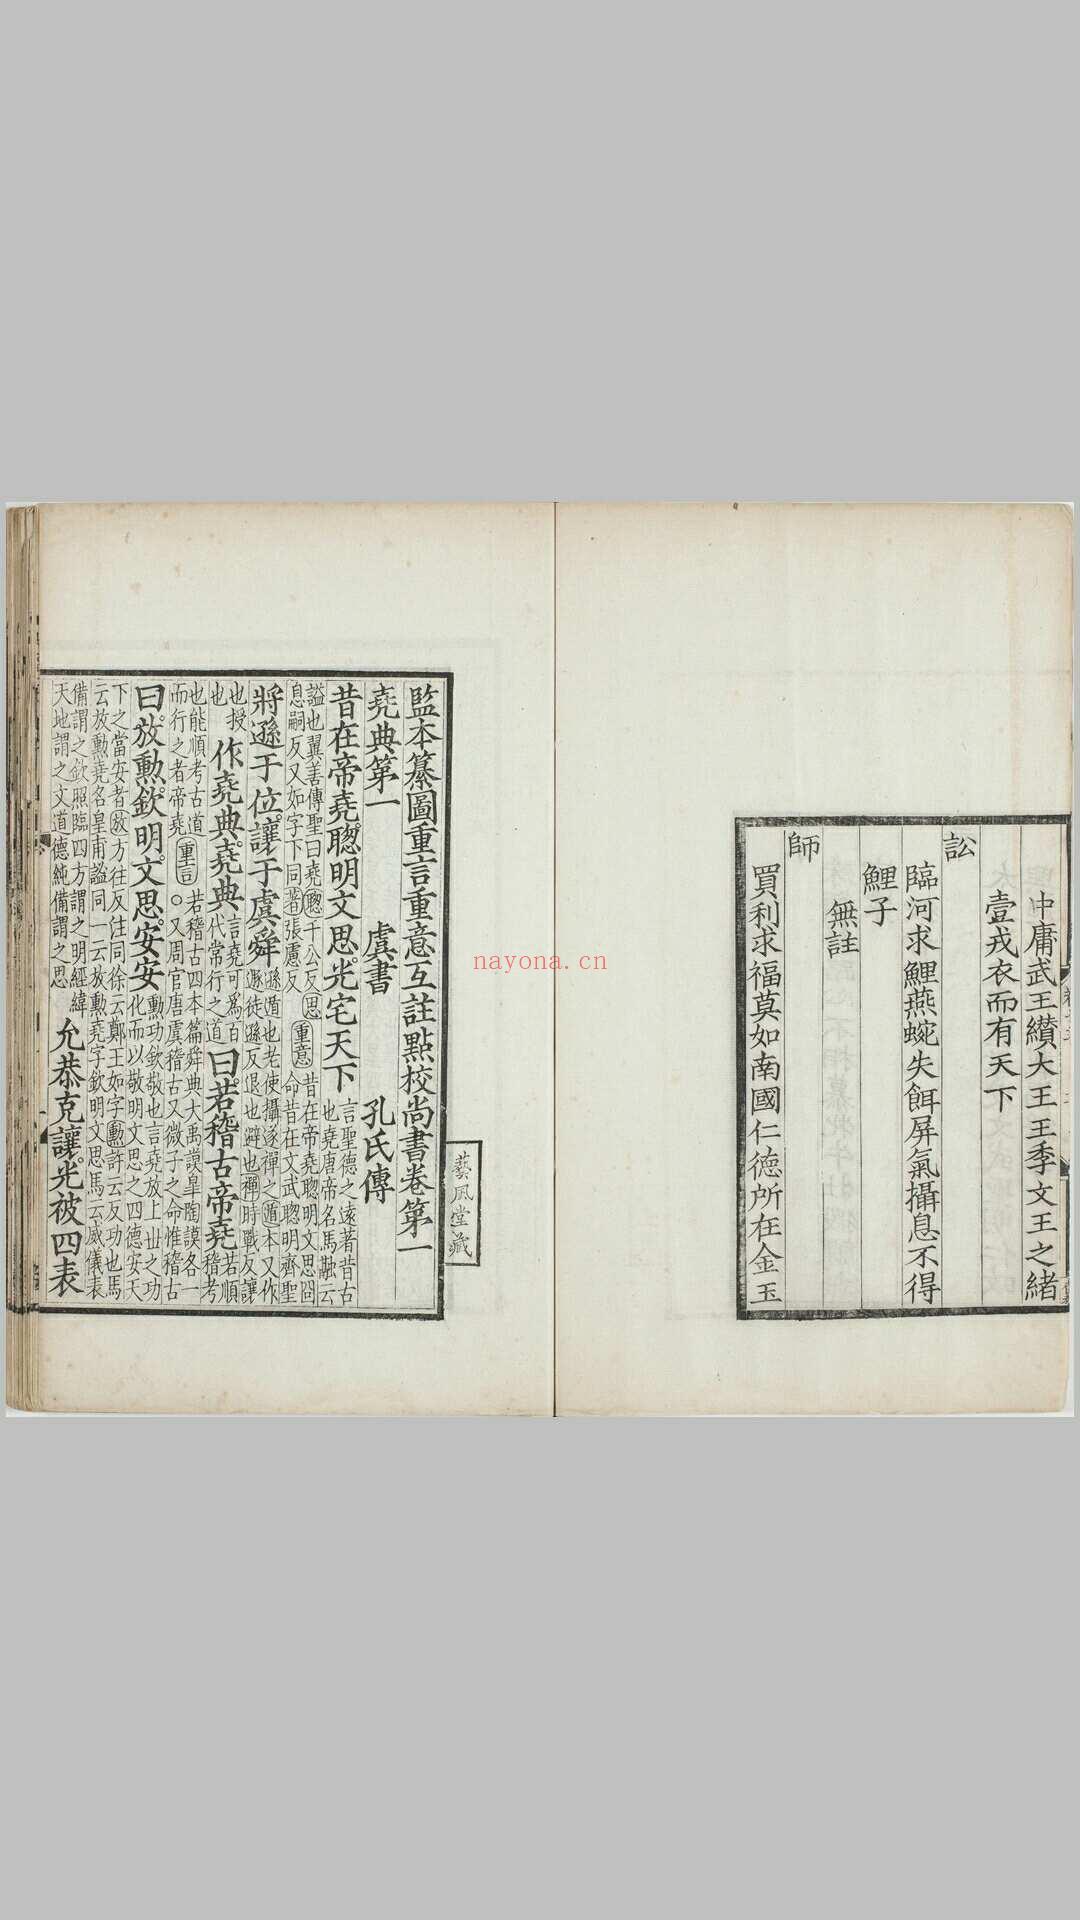 中庸武王纘大王王季文王之緒
壹戎衣而有天下
訟
臨河求鯉燕蜿失餌屏氣攝息不得
鯉子
無註
師
買利求福莫如南國仁德所在金玉
藝風堂藏
監本纂圖重言重意互註點校尚書卷第一
堯典第一 虞書 孔氏傳
昔在帝堯聰明文思光宅天下
言聖德之遠著昔古
也堯唐帝名馬融云
謚也翼善傳聖曰堯聰千公反思
息嗣反又如字下同著張慮反
重意
昔在帝堯聰明文思囧
命昔在文武聰明齊聖
將遜于位讓于虞舜
遜遁也老使攝遂禪之遁本又作
遯徒遜反退也避也禪時戰反讓
也授
也
作堯典堯典
言堯可爲百
代常行之道
曰若稽古帝堯
若順
稽考
也能順考古道
而行之者帝堯
重言
若稽古四本篇舜典大禹謨皐陶謨各一
○又周官唐虞稽古又微子之命惟稽古
曰放勳欽明文思安安
勳功欽敬也言堯放上世之功
化而以敬明文思之四德安天
下之當安者放方往反注同徐云鄭王如字勳許云反功也馬
云放勳堯名皇甫謐同一云放勳堯字欽明文思馬云威儀表
備謂之欽照臨四方謂之明經緯
天地謂之文道德純備謂之思
允恭克讓光被四表
nayona.cn